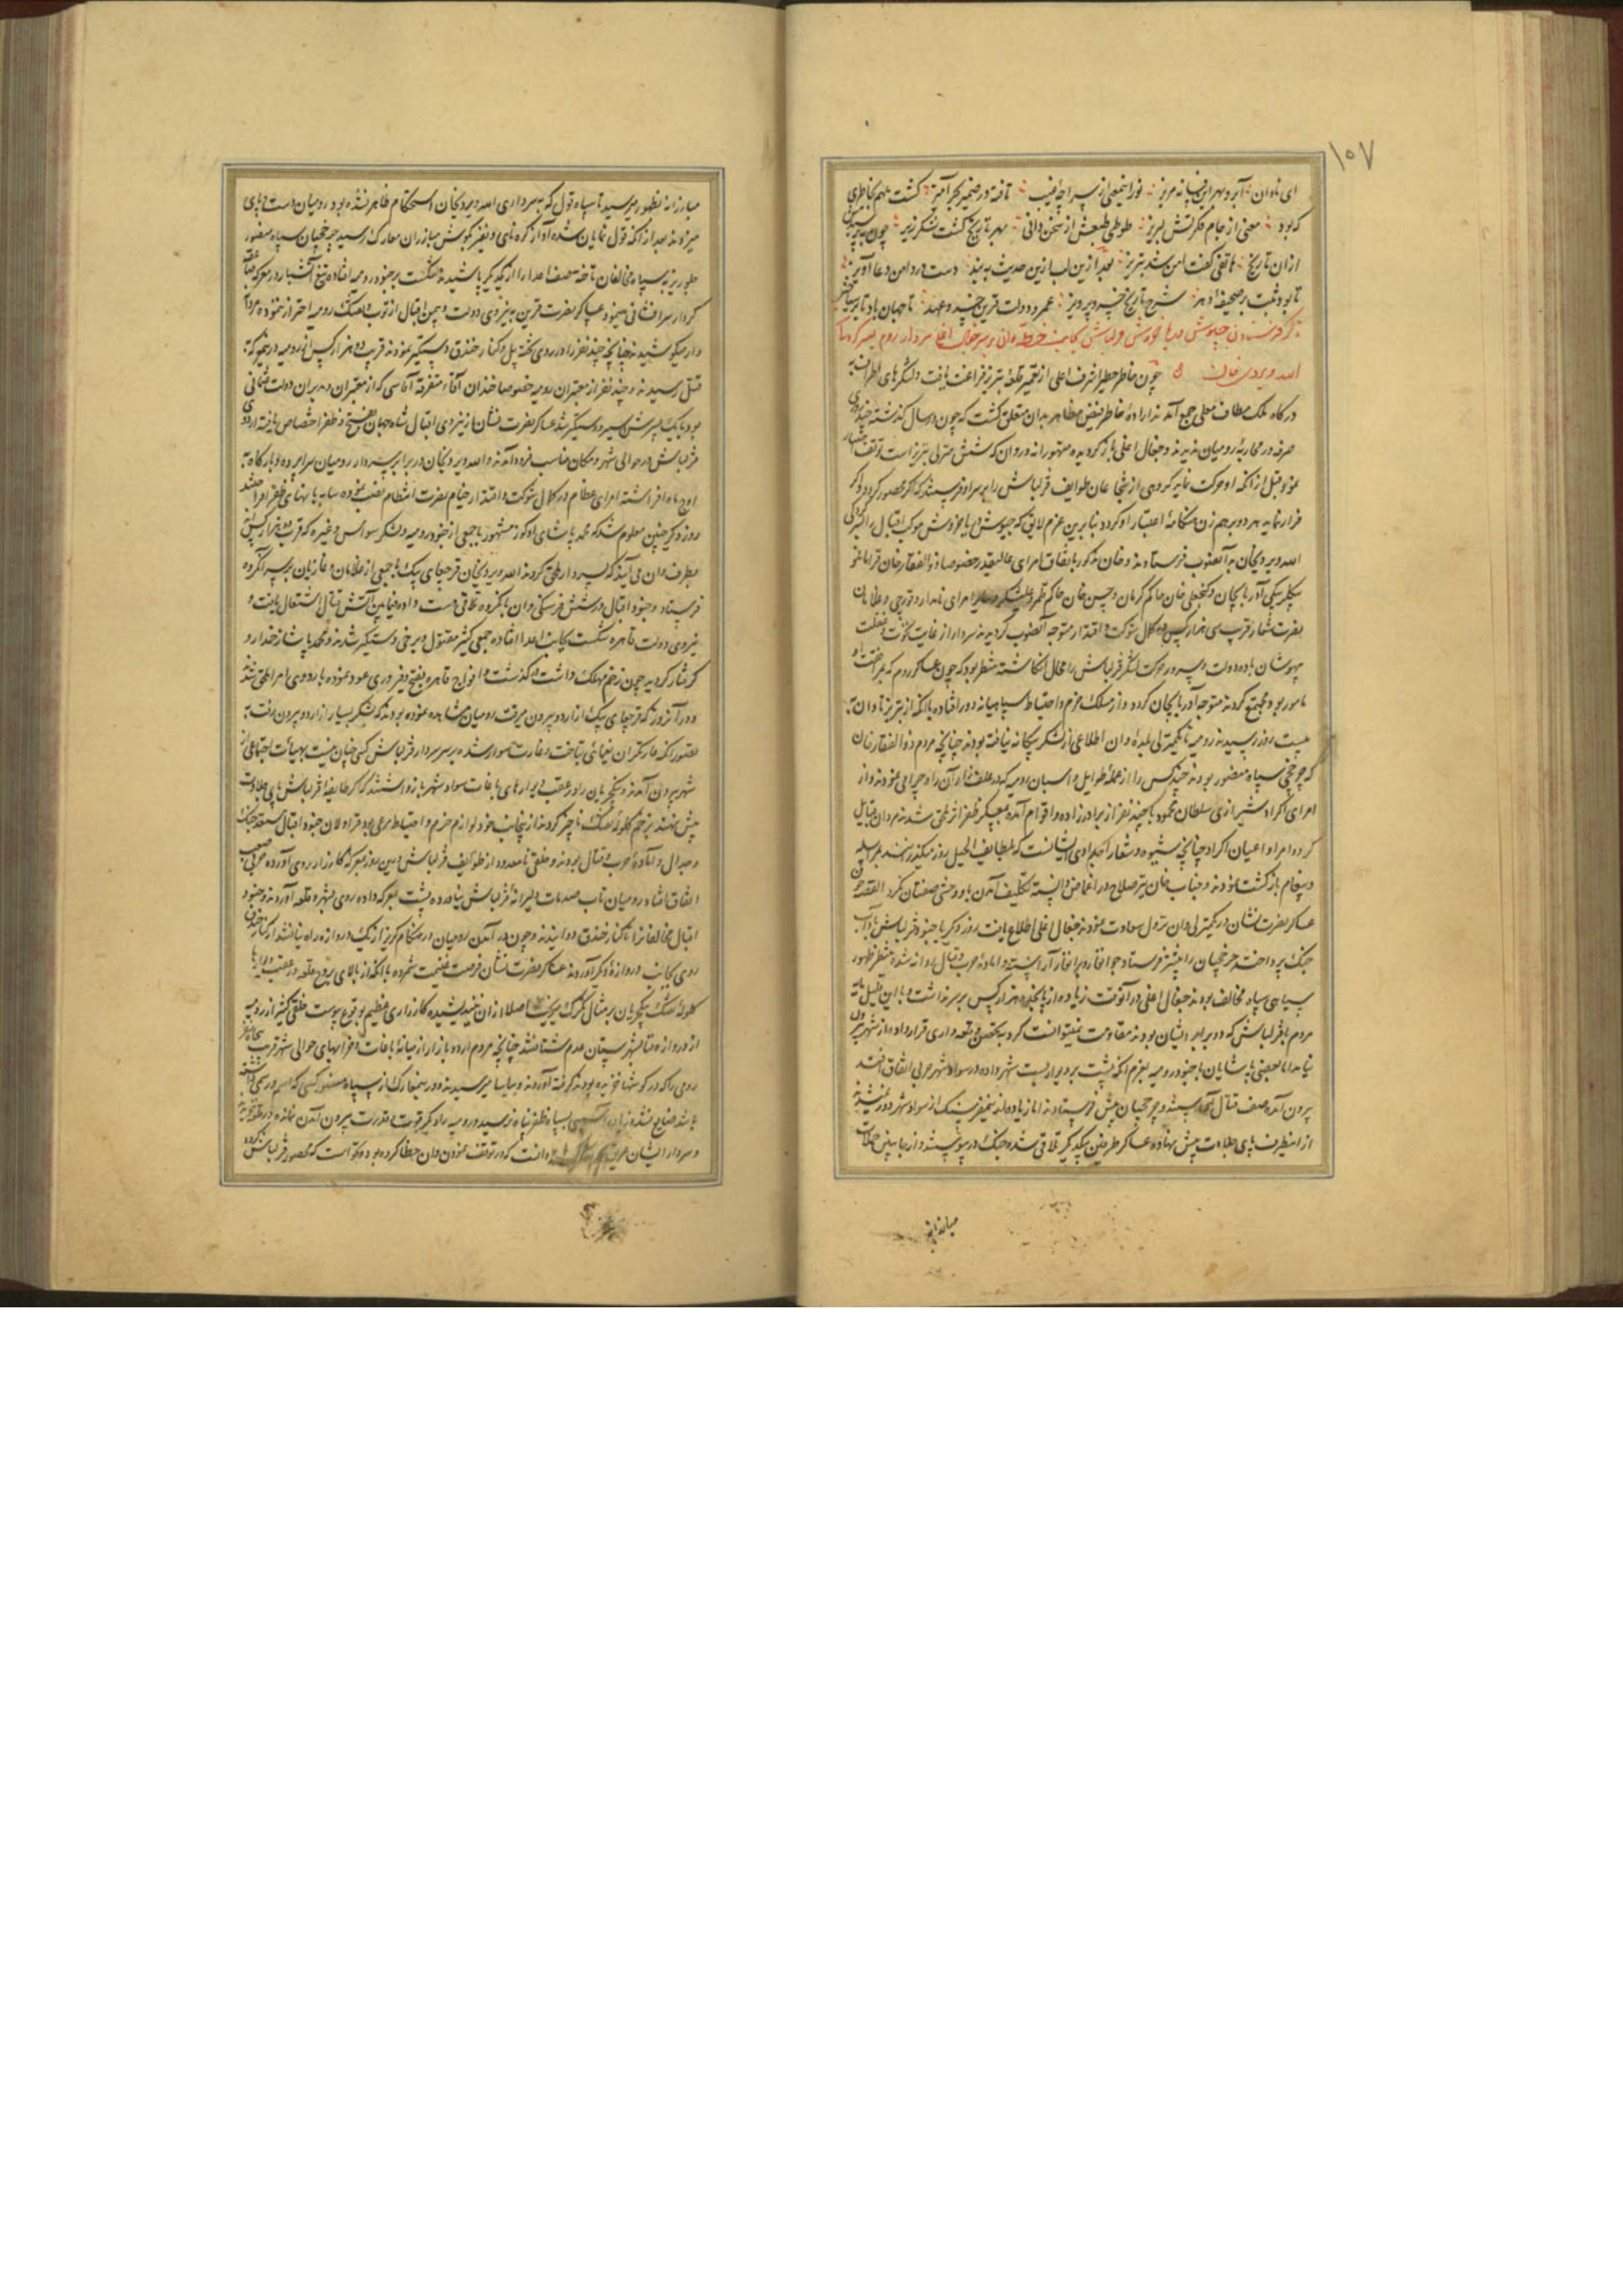 ۱۰۷
ای نادان آبرو بهر این فسانه مریز نور المعی از سراچه غیب تافته در ضمیر بحرآمیز گشت ملهم بخاطری
که بود معنی از جام فکرتش لبریز طوطی طبعش از سخن دانی بهر تاریخ گشت شکرریز چون
ازان تاریخ هاتفی گفت امن شد تبریز بعد ازین لب ازین حدیث به بند دست در دامن دعا آویز
تا بود ثبت بر صحیفه دهر شرح تاریخ خسرو پرویز عمر و دولت قرین و عهد تا جهان باد
ذکر فرستادن جیوش دریا خروش قزلباش بجانب وان بر سر جغال اغلی سردار روم بسرکردگی
الله ویردی خان چون خاطر خطیر اشرف اعلی از تعمیر قلعه تبریز فراغت یافت و لشکرهای اطراف
درگاه فلک مطاف معلی جمع آمدند اراده خاطر فیض مظاهر بدان متعلق گشت که چون در سال گذشته
صرفه در محاربه رومیان ندیدند و جغال اغلی بازگردیده متهورانه در وان که شش منزلی تبریز است توقف
نمود قبل از انکه او حرکت نماید گروهی از شجاعان طوایف قزلباش را بر سر او فرستند که اگر محصور گردد و اگر
فرار نماید بهر دو برهم زن هنگامه اعتبار او گردد بنابرین عزم لایق که جیوش دریا خروش موکب اقبال را بسرکردگی
الله ویردیخان به آنصوب فرستادند و خان مذکور باتفاق امرای عالیقدر خصوصا ذوالفقار خان قرامانلو
بیگلربیگی آذربایجان و گنجعلی خان حاکم کرمان و حسن خان حاکم قلمرو علیشکر و سایر امرای نامدار و قورچی و غلامان
نصرت شعار قریب سی هزار کس در کمال شوکت و اقتدار متوجه آنصوب گردیدند سردار از غایت نخوت و غفلت
بیهوشان باده دولت و سرور حرکت لشکر قزلباش را محال انگاشته منتظر بود که چون عساکر روم که
مامور بودند مجتمع گردند متوجه آذربایجان گردد و از مسلک حزم و احتیاط سپاهیانه دور افتاده با انکه از تبریز تا وان
بیست روز رسیدند رومیه تا یکمنزلی بلده وان اطلاعی از لشکر بیگانه نیافته بودند چنانچه مردم ذوالفقار خان
که چرخچی سپاه منصور بودند چند کس را از عمله طوایل و اسبان رومیه که در علفزار آن راه چرا می نمودند و از
امرای اکراد شیرازی سلطان محمود با چند نفر از برادرزاده و اقوام آمده بعسکر ظفر اثر ملحق شدند مردان قبایل
کرد و امرا و اعیان اکراد چنانچه شیوه و شعار اجدادی ایشانست که بلطایف الحیل روز میگذرانند بمراسله
و پیغام بازگشت نمودند و جناب خان نیز صلاح در اغماض دانسته تکلیف آمدن باو وحشی صفتان نکرد القصه چون
عساکر نصرت نشان در یکمنزلی وان نزول سعادت نمودند جغال اغلی اطلاع یافت روز دیگر با جنود قزلباش
جنگ پرداخت چرخچیان را پیشتر فرستاد جوانغار و برانغار آراسته و آماده حرب و قتال روانه شده منتظر ظهور
سیاهی سپاه مخالف بودند جغال اغلی در آنوقت زیاده از پانزده هزار کس بر سر نداشت و با این قلیل مایه
مردم با قزلباش که دو برابر ایشان بودند مقاومت نمیتوانست کرد به تحصن و قلعه داری قرار داده از شهر بیرون
نیامد اما بعضی پاشایان با جنود رومیه بعزم انکه پشت بر دیوار بست شهر داده در سواد شهر حربی اتفاق افتد
بیرون آمده صف قتال آراستند و چرخچیان پیش فرستادند اما زیاده از نیمفرسنگ از سواد شهر دور نشدند
از اینطرف پای جلادت پیش نهاده عساکر طرفین بیکدیگر تلاقی شده جنگ در پیوستند و از جانبین حملات
مبارزانه
مبارزانه بظهور میرسید تا سپاه قول که بسرداری الله ویردیخان استحکام ظاهر نشده بود رومیان دست و پای
میزدند بعد از انکه قول نمایان شده آواز کره نای و نفیر بگوش مبارزان معارک رسید چرخچیان سپاه منصور
جلوریز بسپاه مخالفان تاخته صف اعدا را از یکدیگر پاشیدند شکست بر جنود رومیه افتاده تیغ آتشبار در معرکه
کردار سرافشانی مینمود عساکر نصرت قرین به نیروی دولت و یمن اقبال از توپ و تفنک رومیه احتراز ننموده مردانه
وار میکوشیدند چنانچه چند نفر را در روی تخته پل و کنار خندق دستگیر نمودند قریب دو هزار کس از رومیه در معرکه
قتل رسیدند و چند نفر از معتبران رومیه خصوصا خندان آقا متفرقه آقاسی که از معتبران و مدبران دولت عثمانی
بود با یک پسرش اسیر و دستگیر شد عساکر نصرت نشان از نیروی اقبال شاه جهان بفتح و ظفر اختصاص یافته اردوی
قزلباش در حوالی شهر و مکان مناسب فرود آمدند و الله ویردیخان در برابر سردار رومیان سراپرده و بارگاه
اوج ماه افراشته امرای عظام در کمال شوکت و اقتدار خیام نصرت انتظام نصب نموده سایه بانهای ظفر افراختند
روز دیگر چنین معلوم شد که محمد پاشای اوکوز مشهور با جمعی از جنود رومیه و لشکر سواس و غیره که قریب ده هزار کس
بطرف وان می آیند که بسردار ملحق گردند الله ویردیخان قرچقای بیک با جمعی از غلامان و غازیان بر سر آنگروه
فرستاد و جنود اقبال در شش فرسنگی وان بانگروه تلاقی دست داده فیمابین آتش قتال اشتعال یافت و
نیروی دولت قاهره شکست بجانب اعدا افتاده جمعی کثیر مقتول و برخی دستگیر شدند و محمد پاشا زخمدار و
گرفتار گردید چون زخم مهلک داشت درگذشت و افواج قاهره بفتح و فیروزی عود نموده باردوی امرا ملحق شدند
و در آنروز که قرچقای بیک از اردو بیرون میرفت رومیان مشاهده نموده بودند که لشکر بسیار از اردو بیرون رفت
تصور آنکه عارتگران بتاخت و غارت مامور شده بر سر سردار قزلباش کسی چنان نیست بهیأت اجتماعی از
شهر بیرون آمدند و ینگچریان را در عقب دیوارهای باغات سواد شهر بازداشتند که اگر طایفه قزلباش پای جلادت
پیش نهند بزخم گلوله تفنک ناچیز گردند از اینجانب خود لوازم حزم و احتیاط مرعی بود قراولان جنود اقبال مستعد جنگ
و جدال و آماده حرب و قتال بودند و خلقی نامعدود از طوایف قزلباش درین روز بمعرکه کارزار روی آورده حربی صعب
اتفاق افتاد رومیان تاب صدمات دلیرانه قزلباش نیاورده پشت بمعرکه داده روی بشهر و قلعه آوردند و جنود
اقبال مخالفانرا تا کنار خندق دوانیدند و چون در آمدن رومیان در هنگام گریز از یک دروازه راه نیافتند از کنار خندق
روی بجانب دروازه دیگر آوردند عساکر نصرت نشان فرصت غنیمت شمرده با انکه از بالای بروج قلعه و عقب دیوارها
گلوله تفنک ینگچریان بر مثال تگرگ میریخت اصلا ازان نیندیشیده کارزاری عظیم بوقوع پیوست خلقی کثیر از رومیه
از دروازه فنا بشهرستان عدم شتافتند چنانچه مردم اردو بازار از میانه باغات و خرابهای حوالی شهر قریب پنجاه نفر
رومی را که در گوشها خزیده بودند گرفته آوردند و بیاسا میرسیدند و درینمعارک از سپاه منصور کسی که اسم و رسمی داشته
باشد ضایع نشده زیاده آسیبی بسپاه ظفر پناه نرسید و رومیه را دیگر قوت و قدرت بیرون آمدن نمانده در قلعه خزیدند
و سردار ایشان دانست که در توقف نمودن وان خطا کرده بوده که محصور قزلباش گردد